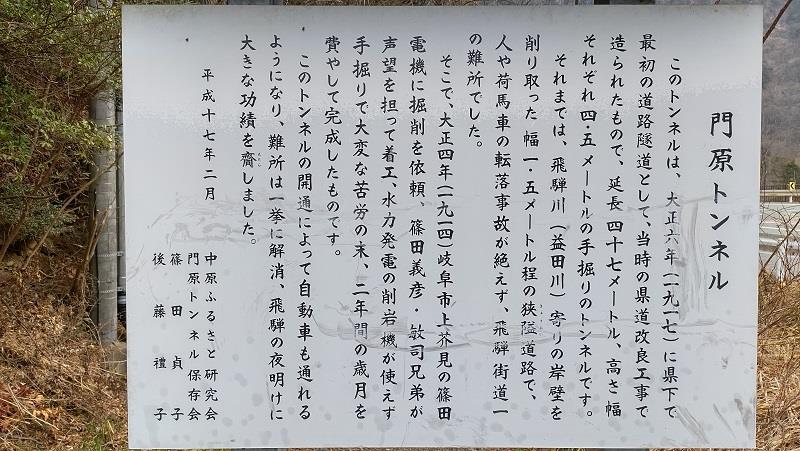 門原トンネル
このトンネルは、大正六年(一九一七)に県下で
最初の道路隧道として、当時の県道改良工事で
造られたもので、延長 四十七メートル、高さ幅
それぞれ 四・五 メートルの手掘りのトンネルです。
それまでは、飛騨川(益田川)寄りの岸壁を
削り取った 幅 一・五メートル程の狭隘道路で、
人や荷馬車の転落事故が絶えず、飛騨街道一
の難所でした。
そこで、大正四年(一九一四)岐阜市上芥見の篠田
電機に掘削を依頼、篠田義彦・敏司兄弟が
声望を担って着工、水力発電の削岩機が使えず
手掘りで大変な苦労の末、二年間の歳月を
費やして完成したものです。
このトンネルの開通によって自動車も通れる
ようになり、難所は一挙に解消、飛騨の夜明けに
大きな功績を齎しました。
平成十七年二月
中原ふるさと研究会
門原トンネル保存会
篠田貞子
後藤禮子